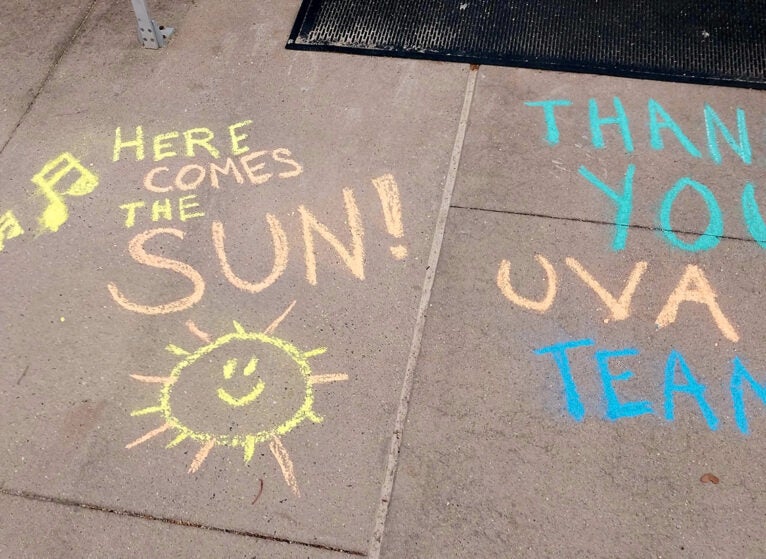 HERE
COMES
THE
SUN!
THAN
YOU
UVA
TEAM